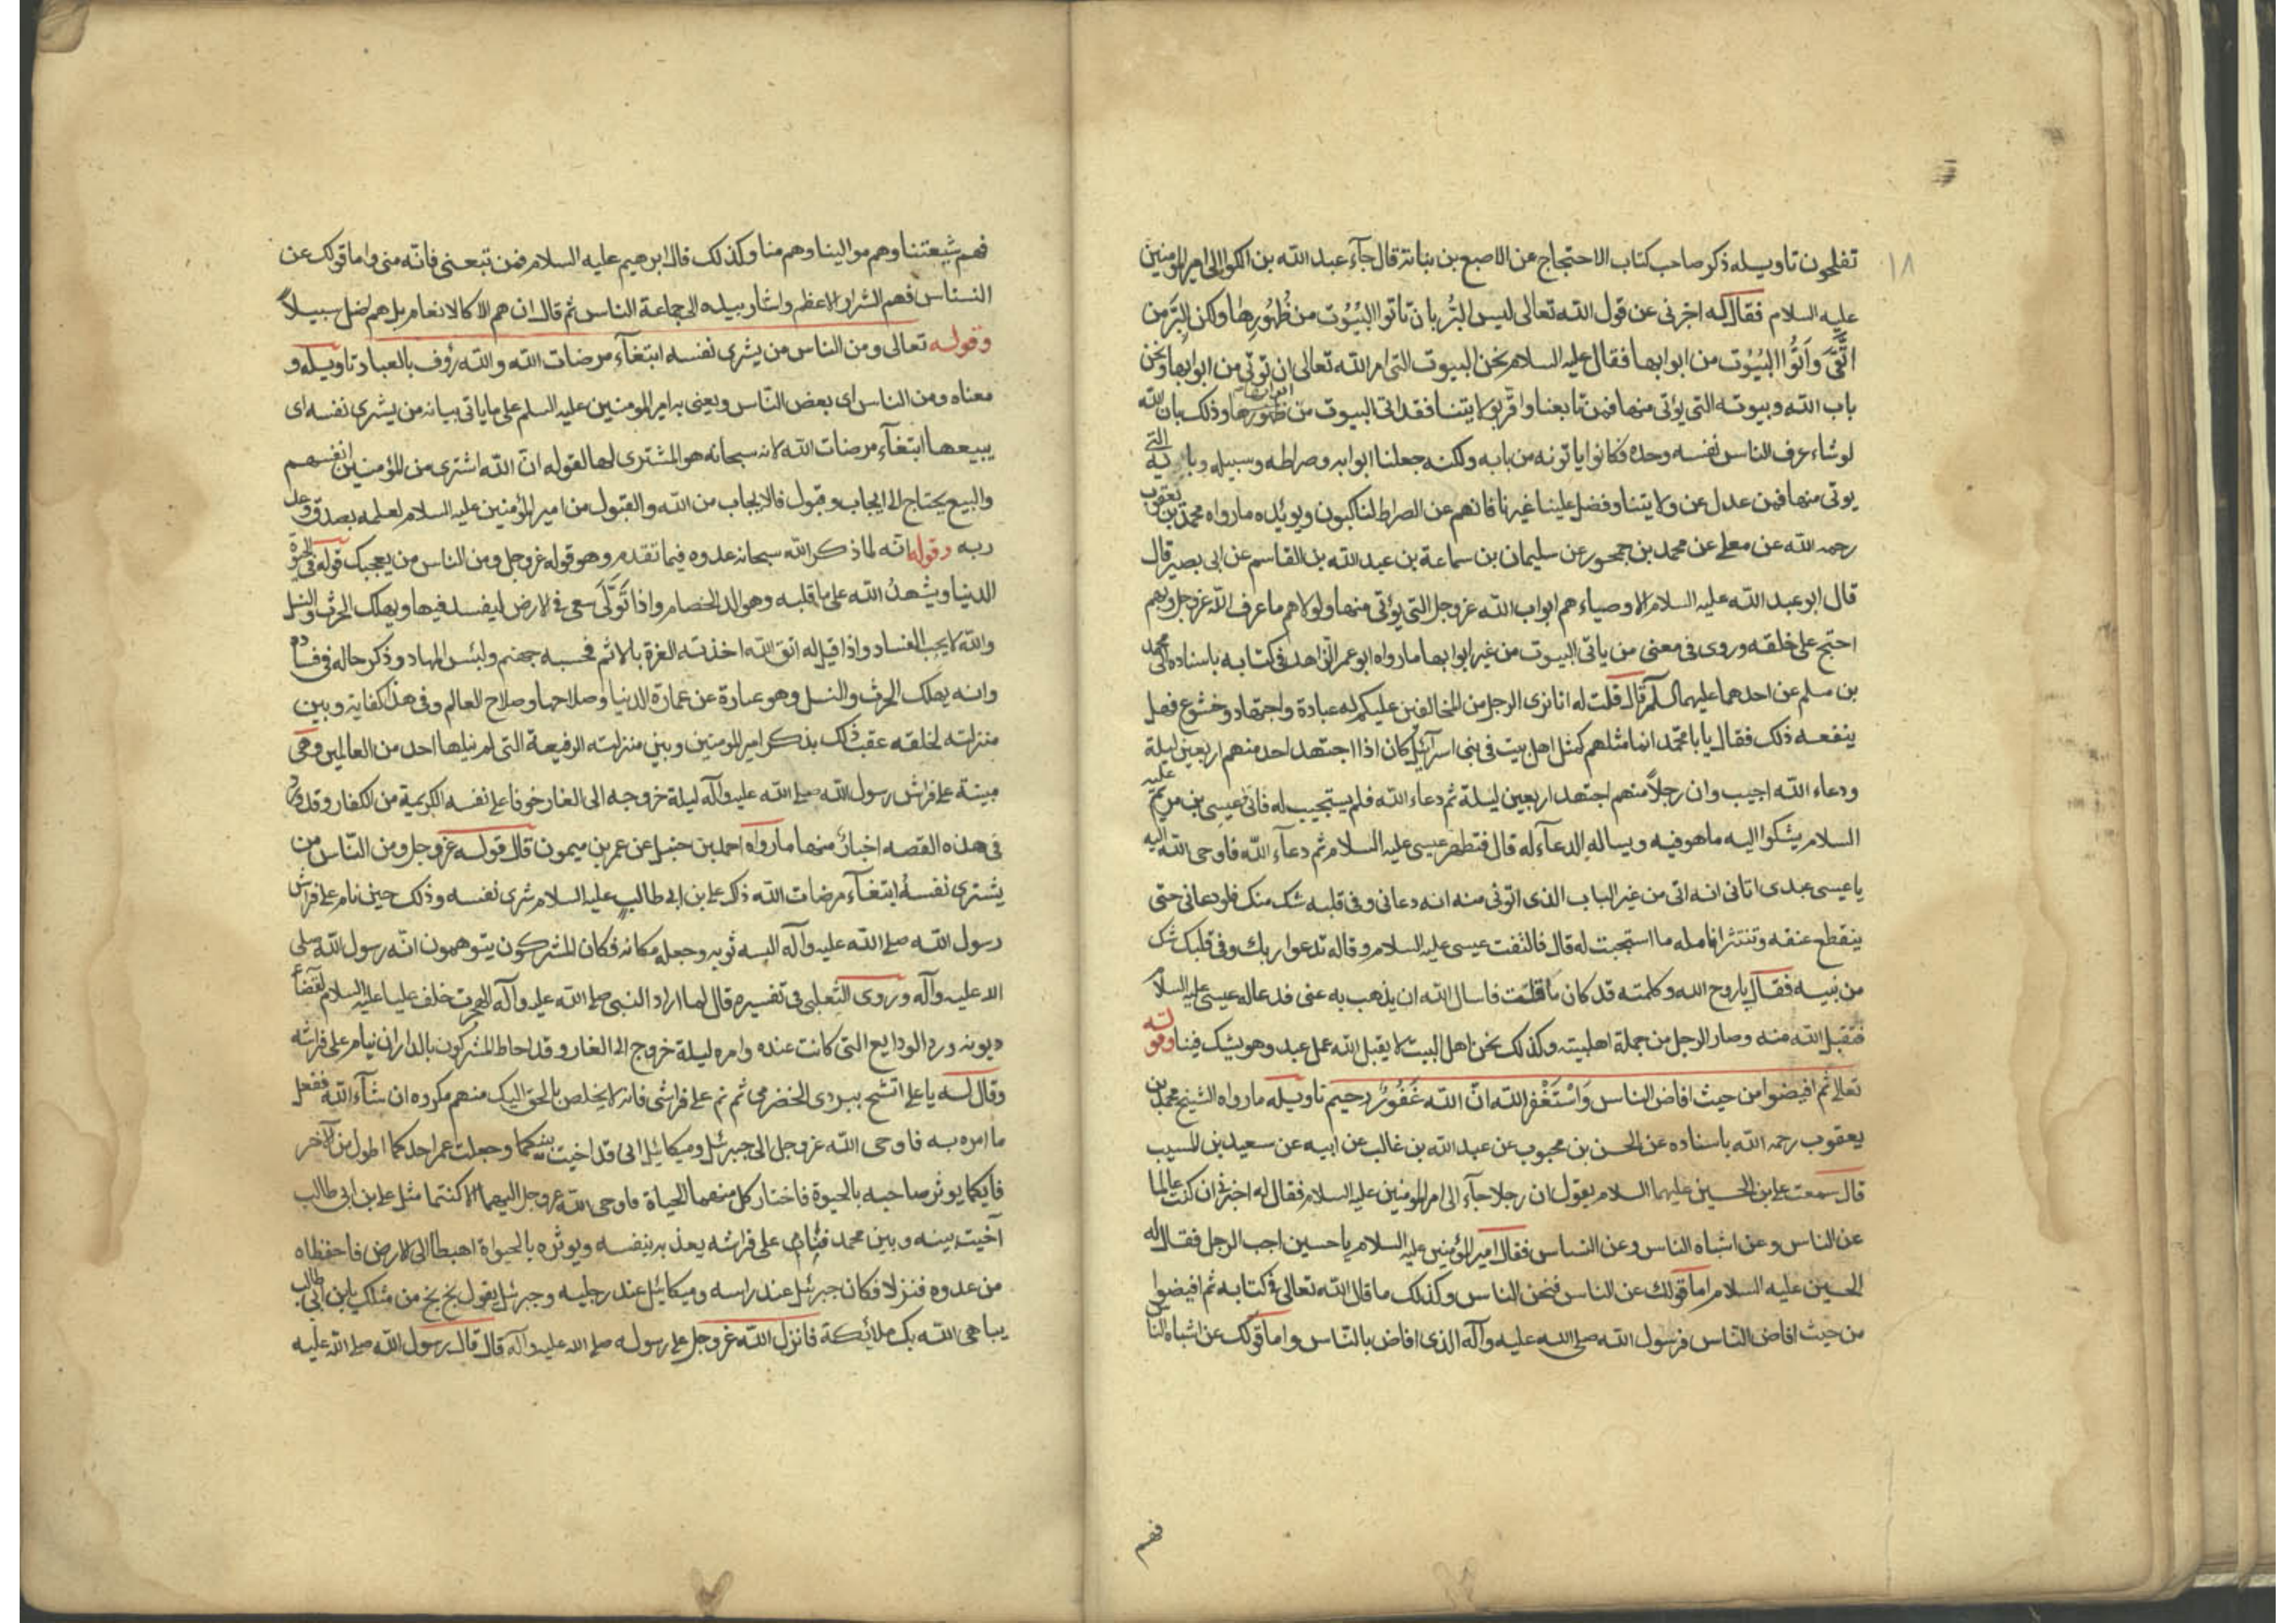 ١٨
تفلحون تاويله ذكر صاحب كتاب الاحتجاج عن الاصبغ بن نباتة قال جآء عبد الله بن الكوا الى امير المومنين
عليه السلام فقال له اخبرنى عن قول الله تعالى ليس البُّر بان تاتوا البُيُوت من ظُهُورِها ولكن البَّر من
اتَّقىَ وَاَتُوا البُيُوت من ابوابها فقال عليه السلام نحن البيوت التى امر الله تعالى ان توتى من ابوابها ونحن
باب الله وبيوته التى يؤتى منها فمن تابعنا واقر بولايتنا فقد اتى البيوت من ظهورها وذلك بان الله
لو شاء عرف الناس نفسه وحده فكانوا ياتونه من بابه ولكنه جعلنا ابوابه وصراطه وسبيله وبابه التى
يوتى منها فمن عدل عن ولايتنا وفضل علينا غيرنا فانهم عن الصراط لناكبون ويويئده مارواه محمد بن يعقوب
رحمه الله عن معلى عن محمد بن جمهور عن سليمان بن سماعة بن عبد الله بن القاسم عن ابى بصير قال
قال ابو عبد الله عليه السلام الاوصياء هم ابواب الله عز وجل التى يؤتى منها ولولاهم ما عرف الله عز وجل وبهم
احتج على خلقه وروى فى معنى من ياتى البيوت من غير ابوابها مارواه ابو عمر الزاهد فى كتابه باسناده الى محمد
بن مسلم عن احدهما عليهما السلم قال قلت له انا نرى الرجل من المخالفين عليكم له عبادة واجتهاد وخشوع فهل
ينفعه ذلك فقال يا با محمد انما مثلهم كمثل اهل بيت فى بنى اسرآئيل كان اذا اجتهد احد منهم اربعين ليلة
ودعاء الله اجيب وان رجلاً منهم اجتهد اربعين ليلة ثم دعاء الله فلم يستجيب له فاتى عيسى بن مريم عليه
السلام يشكوا اليه ماهو فيه ويساله الدعآء له قال فتطهر عيسى عليه السلام ثم دعآء الله فاوحى الله اليه
يا عيسى عبدى اتانى انه اتى من غير الباب الذى اتونى منه انه دعانى وفى قلبه شك منك فلو دعانى حتى
ينقطع عنقه وتنتثر انامله ما استجبت له قال فالتفت عيسى عليه السلام وقاله تدعوا ربك وفى قلبك شك
من نبيه فقال ياروح الله وكلمته قد كان ما قلت فاسال الله ان يذهب به عنى فدعاله عيسى عليه السلام
فتقبل الله منه وصار الرجل من جملة اهلبيته وكذلك نحن اهل البيت لا يقبل الله عمل عبد وهو يشك فينا وقوله
تعالى ثم افيضوا من حيث افاض الناس وَاسْتَغْفر الله انّ الله غَفُورٌ رحيم تاويله مارواه الشيخ محمد بن
يعقوب رحمه الله باسناده عن الحسن بن محبوب عن عبد الله بن غالب عن ابيه عن سعيد بن المسيب
قال سمعت على بن الحسين عليهما السلام يقول ان رجلا جآء الى امير المومنين عليه السلام فقال له اخبرنى ان كنت عالما
عن الناس وعن اشباه الناس وعن النسناس فقال امير المؤمنين عليه السلام يا حسين اجب الرجل فقال له
الحسين عليه السلام اما قولك عن الناس فنحن الناس وكذلك ما قال الله تعالى فى كتابه ثم افيضوا
من حيث افاض النّاس فرسول الله صلى الله عليه وآله الذى افاض بالنّاس واما قولك عن اشباه الناس
فهم
فهم شيعتنا وهم موالينا وهم منا وكذلك قال ابرهيم عليه السلام فمن تبعنى فانّه منى واما قولك عن
النسناس فهم الشرار الاعظم واشار بيده الى جماعة الناس ثم قال ان هم الا كالانعام بل هم اضل سبيلاً
وقوله تعالى ومن الناس من يشرى نفسه ابتغآء مرضات الله والله رؤف بالعباد تاويله و
معناه ومن الناس اى بعض النّاس ويعنى به امير المومنين عليه السلم على ماياتى بيانه من يشرى نفسه اى
يبيعها ابتغآء مرضات الله لانه سبحانه هو المشترى لها لقوله انّ الله اشترى من المؤمنين انفسهم
والبيع يحتاج الى ايجاب وقبول فالايجاب من الله والقبول من امير المؤمنين عليه السلام لعلمه بصدق وعد
ربه وقوله انه لما ذكر الله سبحانه عدوه فيما تقدم وهو قوله عز وجل ومن الناس من يعجبك قوله فى الحيوة
الدنيا ويشهدُ الله على ما قلبه وهو الد الخصام واذا تَوَلّى سعى فى الارض ليفسد فيها ويهلك الحرث والنسل
والله لا يحب الفساد واذا قيل له اتق الله اخذته العزة بالاثم فحسبه جهنم ولبئس المهاد وذكر حاله فى فساده
وانه يهلك الحرث والنسل وهو عبارة عن عمارة الدنيا وصلاحها وصلاح العالم وفى هذا كفاية وبين
منزلته لخلقه عقب ذلك بذكر امير المومنين وبين منزلته الرفيعة التى لم ينلها احد من العالمين وهى
مبيته على فراش رسول الله صلى الله عليه وآله ليلة خروجه الى الغار خوفا على نفسه الكريمة من الكفار وقد ورد
فى هذه القصه اخبار منها مارواه احمد بن حنبل عن عمر بن ميمون قال قوله عز وجل ومن النّاس من
يشترى نفسهُ ابتغآء مرضات الله ذلك على بن ابى طالب عليه السلام شرى نفسه وذلك حين نام على فراش
رسول الله صلى الله عليه وآله البسه ثوبه وجعله مكانه فكان المشركون يتوهمون انّه رسول الله صلى
الله عليه وآله وروى الثعلبى فى تفسيره قال لما اراد النبى صلى الله عليه وآله الهجرت خلف عليا عليه السلام لقضآء
ديونه ورد الودايع التى كانت عنده وامره ليلة خروج الى الغار وقد احاط المشركون بالدار ان ينام على فراشه
وقال له يا على اتشح ببردى الخضرمى ثم نم على فراشى فانه لا يخلص بالحق اليك منهم مكروه ان شآء الله ففعل
ما امره به فاوحى الله عز وجل الى جبرئيل وميكائيل انى قد اخيت بينكما وجعلت عمر احدكما اطول من الآخر
فايكما يوثر صاحبه بالحيوة فاختار كل منهما الحياة فاوحى الله عز وجل اليهما الا كنتما مثل على بن ابى طالب
آخيت بينه وبين محمد فبات على فراشه يفديه بنفسه ويوثره بالحيواة اهبطا الى الارض فاحفظاه
من عدوه فنزلا فكان جبرئيل عند راسه وميكائيل عند رجليه وجبرئيل يقول بخ بخ من مثلك يا بن ابى طالب
يباهى الله بك ملائكة فانزل الله عز وجل على رسوله صلى الله عليه وآله قال قال رسول الله صلى الله عليه